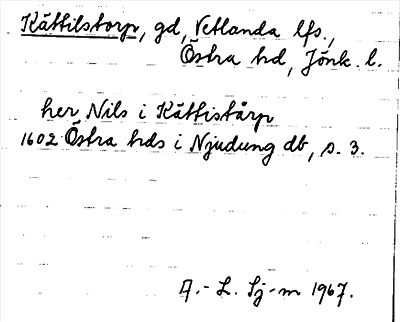 Kättilstorp, gd, Vetlanda lfs.,
Östra hd, Jönk. l.
her Nils i Kättistårp
1602 Östra hds i Njudung db, s. 3.
A.-L. Sj-m 1967.